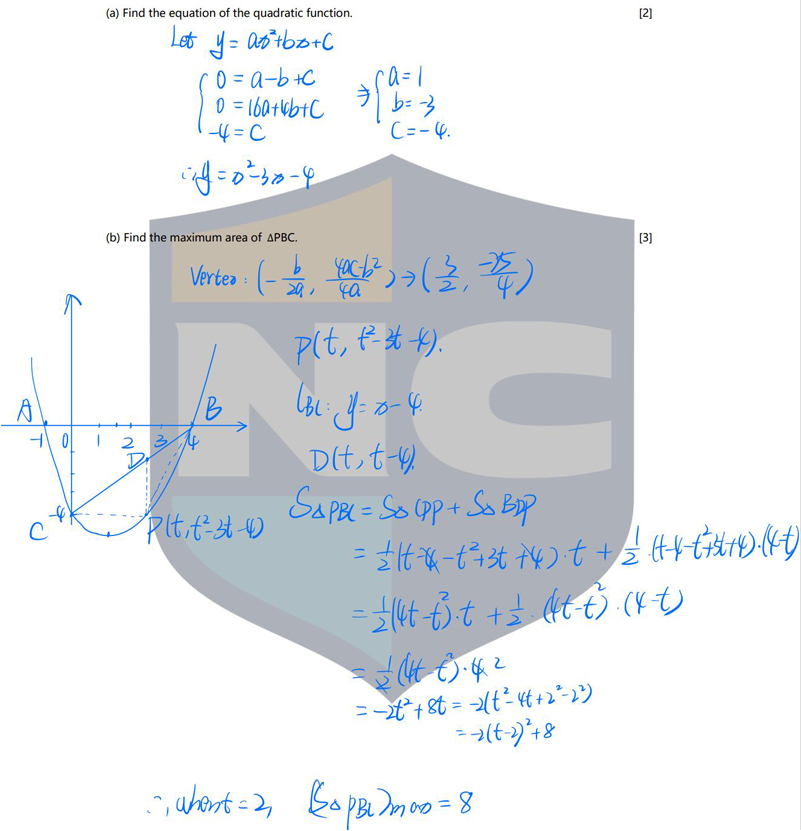 (a) Find the equation of the quadratic function. [2]
Let y = ax²+bx+c
0 = a-b+c
0 = 16a+4b+c
-4 = c
⇒ a = 1
b = -3
c = -4.
∴ y = x²-3x-4
(b) Find the maximum area of ΔPBC. [3]
Vertex: (-b/2a, 4ac-b²/4a) → (3/2, -25/4)
P(t, t²-3t-4).
l_BC: y = x-4.
D(t, t-4).
A B
-1 0 1 2 3 4
D
-4
C P(t, t²-3t-4)
S△PBC = S△CDP + S△BDP
= 1/2 (t-4-t²+3t+4)·t + 1/2·(t-4-t²+3t+4)·(4-t)
= 1/2 (4t-t²)·t + 1/2·(4t-t²)·(4-t)
= 1/2 (4t-t²)·4 2
= -2t²+8t = -2(t²-4t+2²-2²)
= -2(t-2)²+8
∴, when t=2, (S△PBC)max = 8
NC